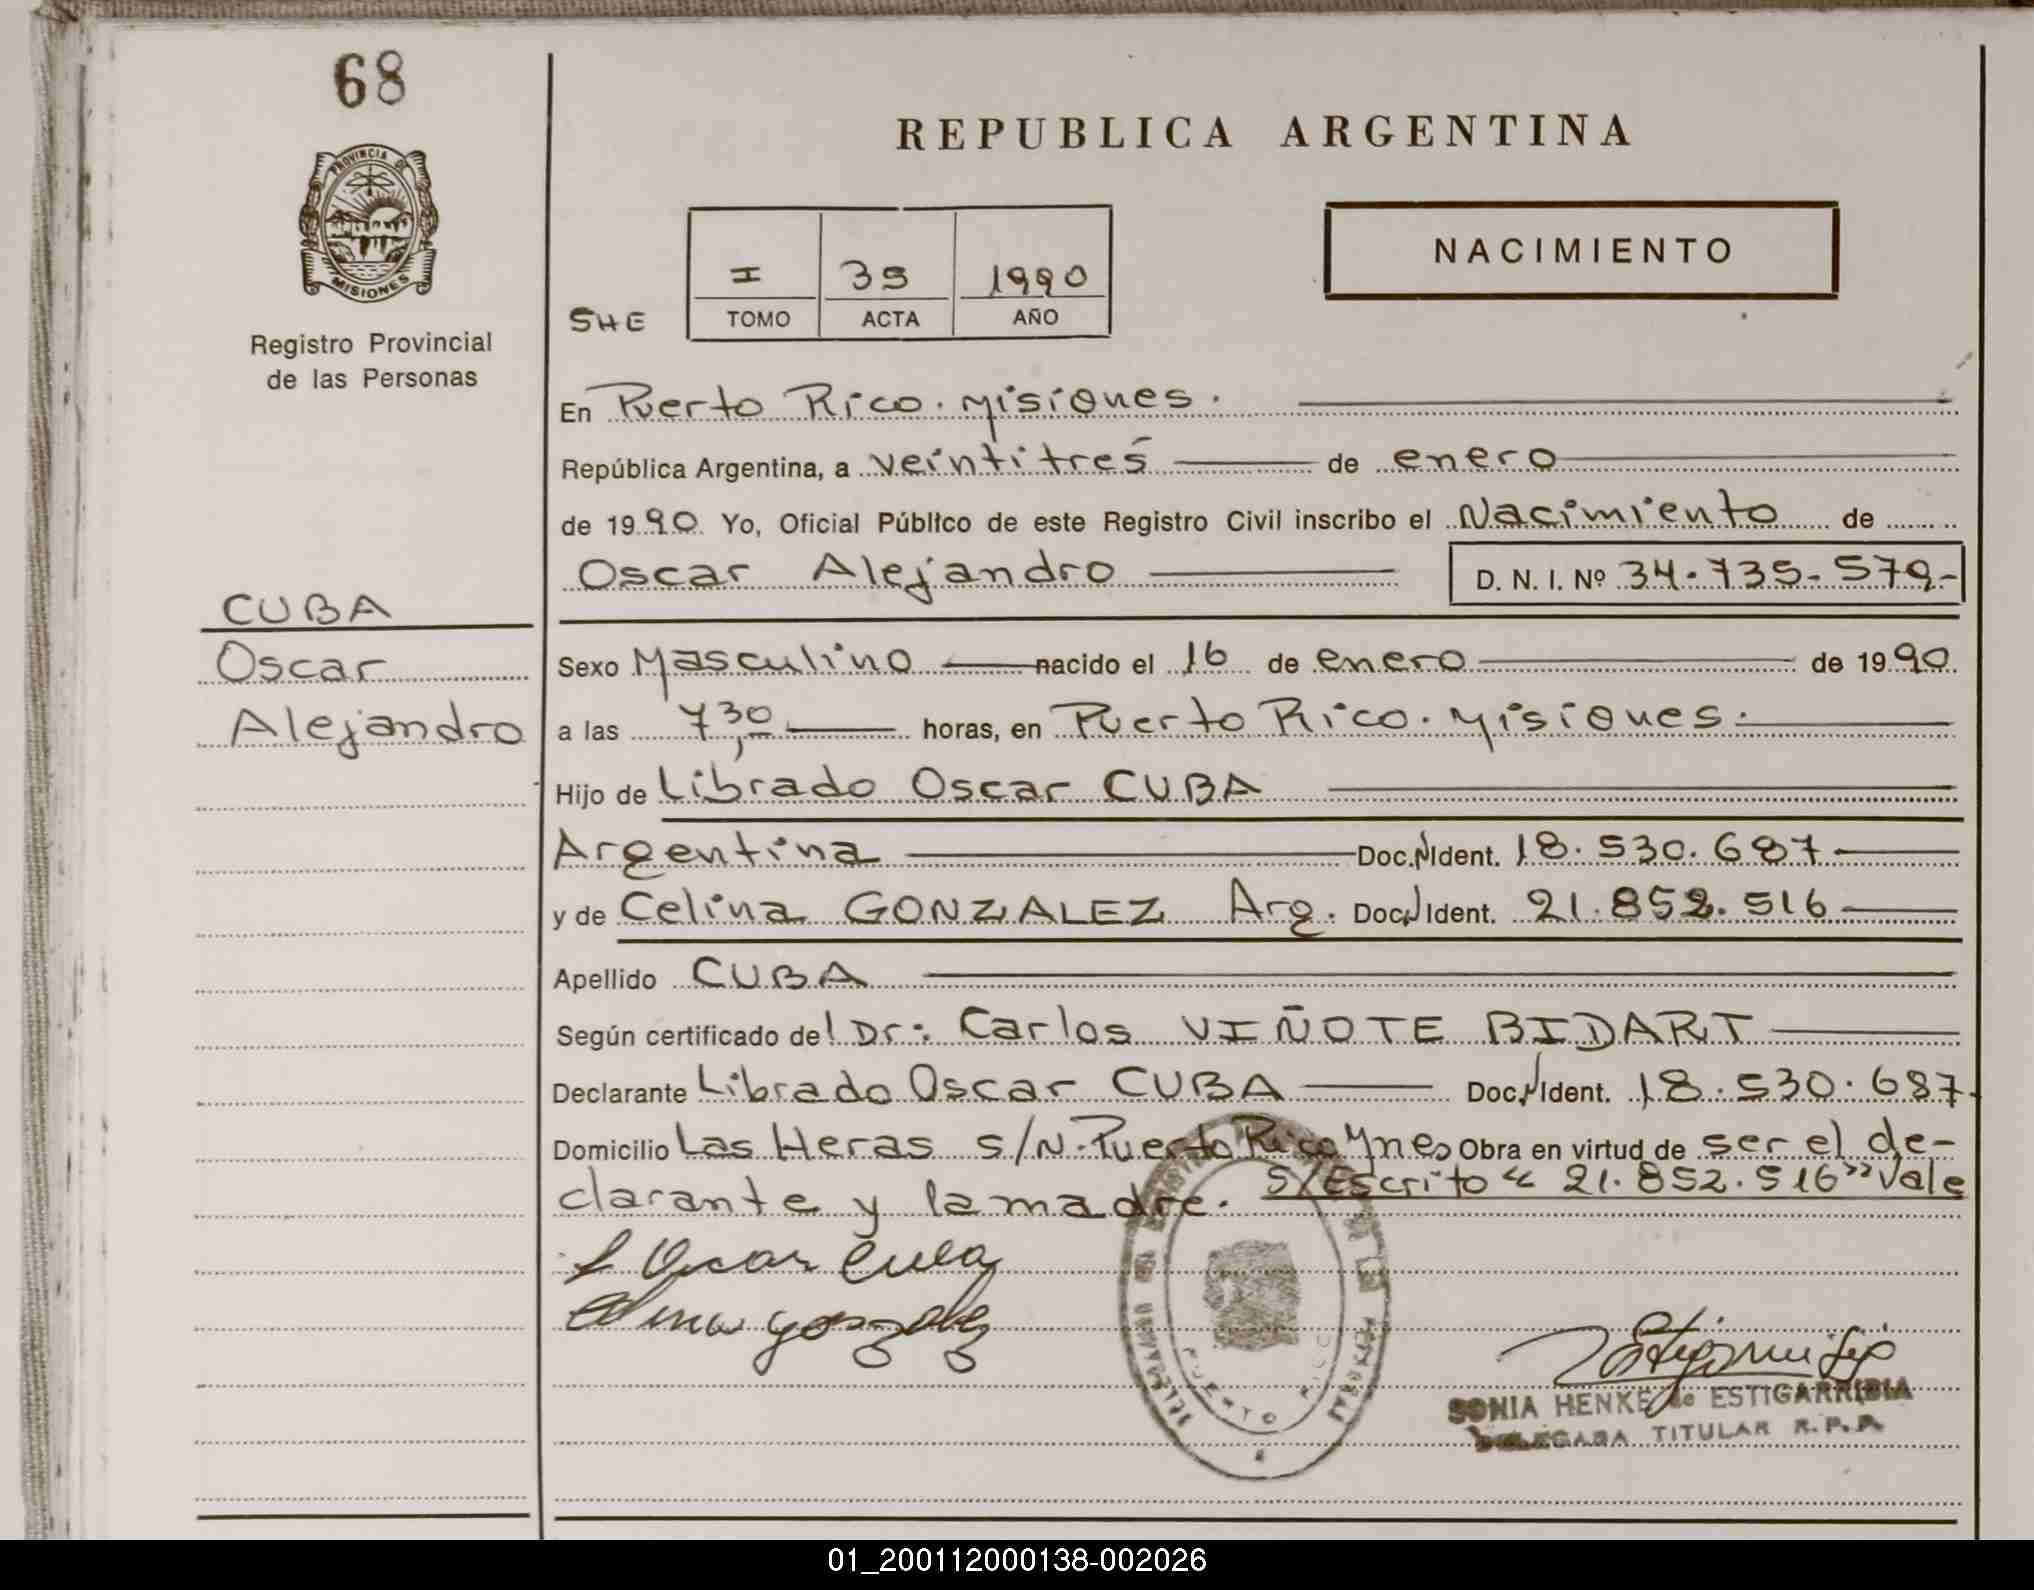 68
REPUBLICA ARGENTINA
PROVINCIA DE
MISIONES
Registro Provincial
de las Personas
NACIMIENTO
I 39 1990
SHE TOMO ACTA AÑO
En Puerto Rico. Misiones.
República Argentina, a veintitrés de enero
de 1990. Yo, Oficial Público de este Registro Civil inscribo el Nacimiento de
Oscar Alejandro D. N. I. Nº 34.735.579.-
CUBA
Oscar
Alejandro
Sexo Masculino nacido el 16 de enero de 1990.
a las 7,30 horas, en Puerto Rico. Misiones.
Hijo de Librado Oscar CUBA
Argentina Doc. N Ident. 18.530.687
y de Celina GONZALEZ Arg. Doc. N Ident. 21.852.516
Apellido CUBA
Según certificado del Dr: Carlos VIÑOTE BIDART
Declarante Librado Oscar CUBA Doc. N Ident. 18.530.687
Domicilio Las Heras s/N. Puerto Rico Mnes Obra en virtud de ser el de-
clarante y la madre. S/Escrito "21.852.516" Vale
L Oscar Cuba
Celina Gonzalez
PUERTO RICO
SONIA HENKE de ESTIGARRIBIA
DELEGADA TITULAR R.P.P.
01_200112000138-002026